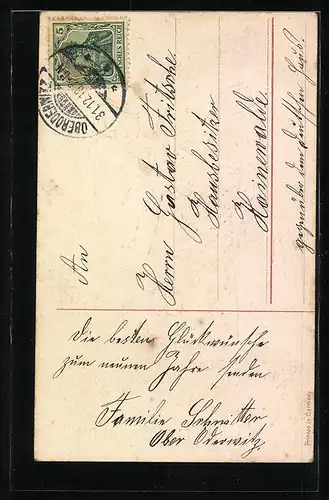 5
CHES REICH
OBERODERWITZ
31.12.10
An
Herrn Gustav Fritsche
Hausbesitzer
Hainewalde
gegenüber dem deutschen Haus.
Die besten Glückwünsche
zum neuen Jahre senden
Familie Schnitter
Ober Oderwitz.
Printed in Germany